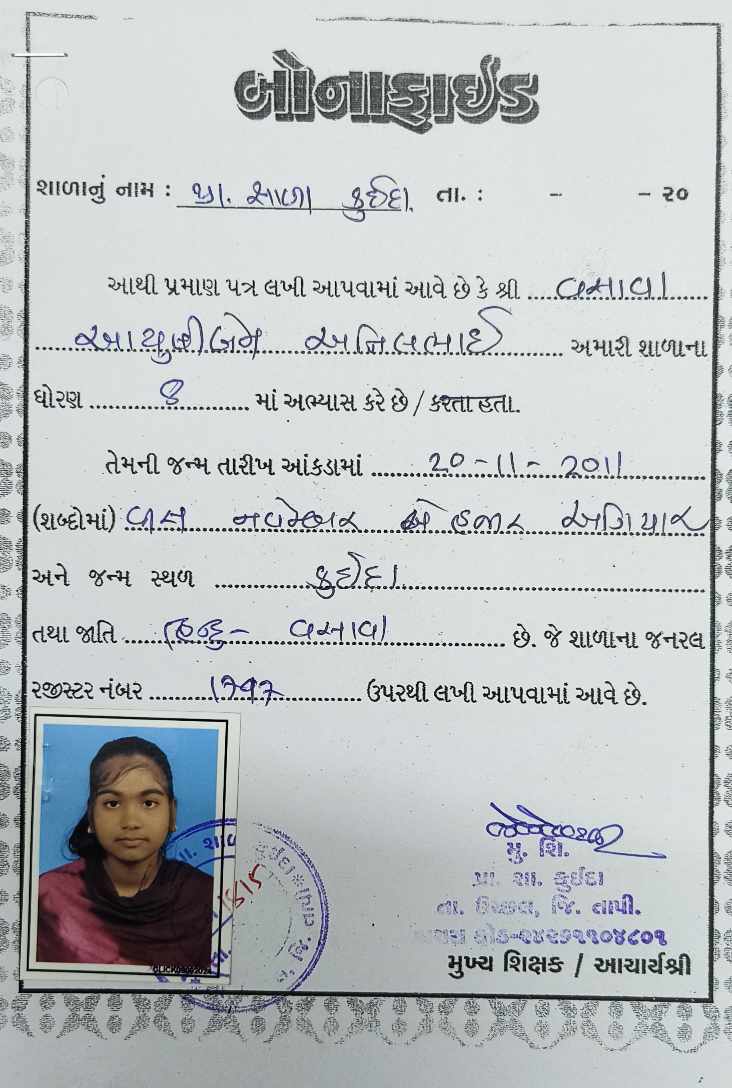 બોનાફાઈડ
શાળાનું નામ : પ્રા. શાળા કુઈદા તા. : - - ૨૦
આથી પ્રમાણ પત્ર લખી આપવામાં આવે છે કે શ્રી વસાવા
અનિલભાઈ અમારી શાળાના
ધોરણ ૬ માં અભ્યાસ કરે છે / કરતા હતા.
તેમની જન્મ તારીખ આંકડામાં 20-11-2011
(શબ્દોમાં) વીસ નવેમ્બર બે હજાર અગિયાર
અને જન્મ સ્થળ કુઈદા
તથા જાતિ હિન્દુ - વસાવા છે. જે શાળાના જનરલ
રજીસ્ટર નંબર ઉપરથી લખી આપવામાં આવે છે.
મુ. શિ.
પ્રા. શા. કુઈદા
તા. ઉચ્છલ, જિ. તાપી.
મુખ્ય શિક્ષક / આચાર્યશ્રી